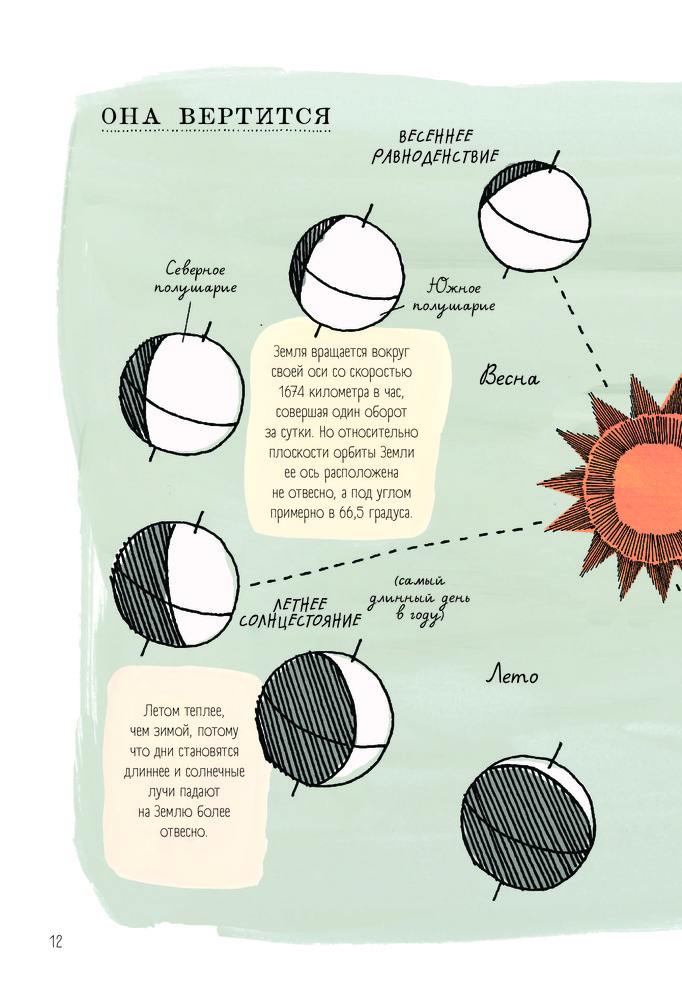 ОНА ВЕРТИТСЯ
ВЕСЕННЕЕ
РАВНОДЕНСТВИЕ
Северное
полушарие
Южное
полушарие
Земля вращается вокруг
своей оси со скоростью
1674 километра в час,
совершая один оборот
за сутки. Но относительно
плоскости орбиты Земли
ее ось расположена
не отвесно, а под углом
примерно в 66,5 градуса.
Весна
ЛЕТНЕЕ
СОЛНЦЕСТОЯНИЕ
(самый
длинный день
в году)
Лето
Летом теплее,
чем зимой, потому
что дни становятся
длиннее и солнечные
лучи падают
на Землю более
отвесно.
12